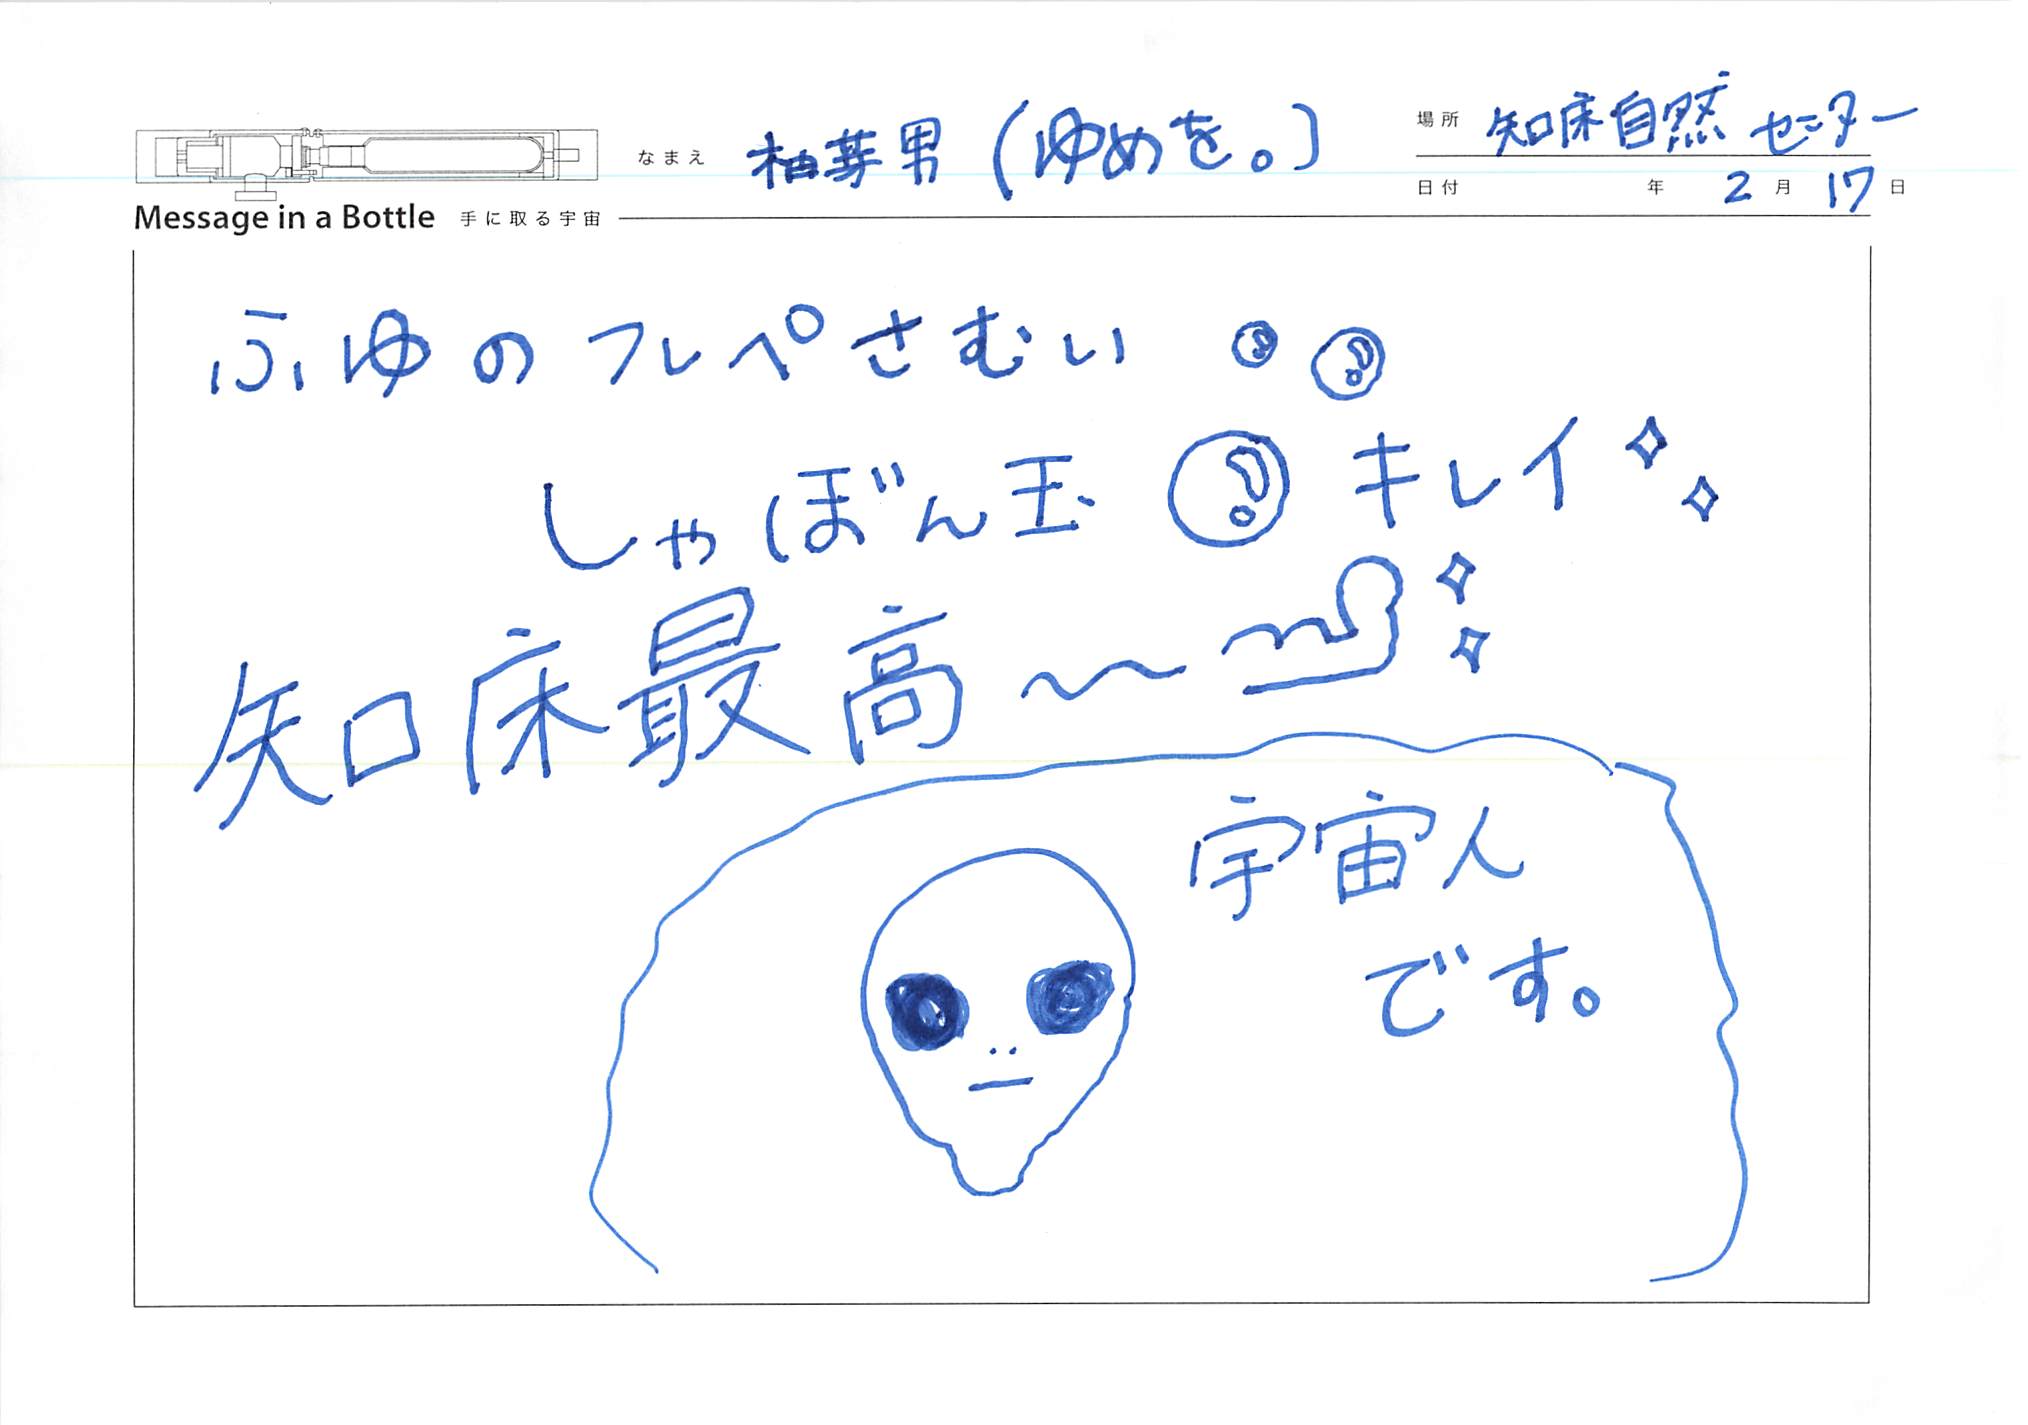 なまえ 柚芽男(ゆめを。)
場所 知床自然センター
日付 年 2月 17日
Message in a Bottle 手に取る宇宙
ふゆのフレペさむい
しゃぼん玉 キレイ
知床最高〜
宇宙人
です。